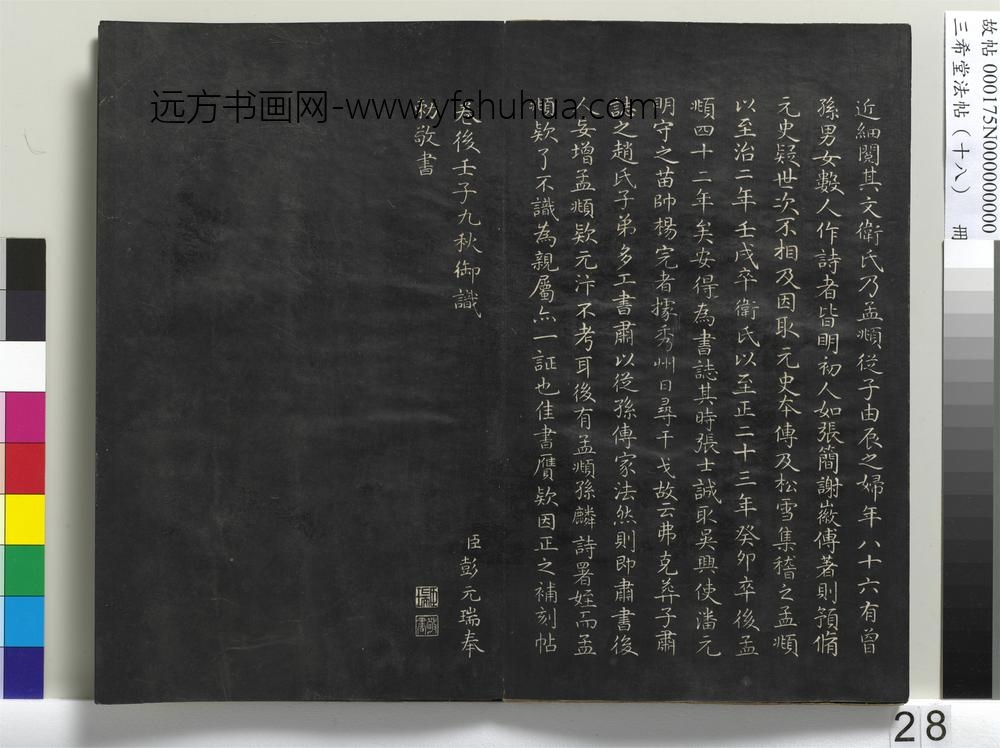 近細閱其文衛氏乃孟頫從子由辰之婦年八十六有曾
孫男女數人作詩者皆明初人如張簡謝徽傅著則預脩
元史疑世次不相及因取元史本傳及松雪集稽之孟頫
以至治二年壬戌卒衛氏以至正二十三年癸卯卒後孟
頫四十二年矣安得為書誌其時張士誠取吳興使潘元
明守之苗帥楊完者據秀州日尋干戈故云弗克葬子肅
誌之趙氏子弟多工書肅以從孫傳家法然則即肅書後
人妄增孟頫欵元汴不考耳後有孟頫孫麟詩署姪而孟
頫欵了不識為親屬亦一証也佳書贋欵因正之補刻帖
後壬子九秋御識
臣彭元瑞奉
勅敬書
远方书画网-www.yfshuhua.com
故帖 000175N000000000
三希堂法帖（十八） 冊
28